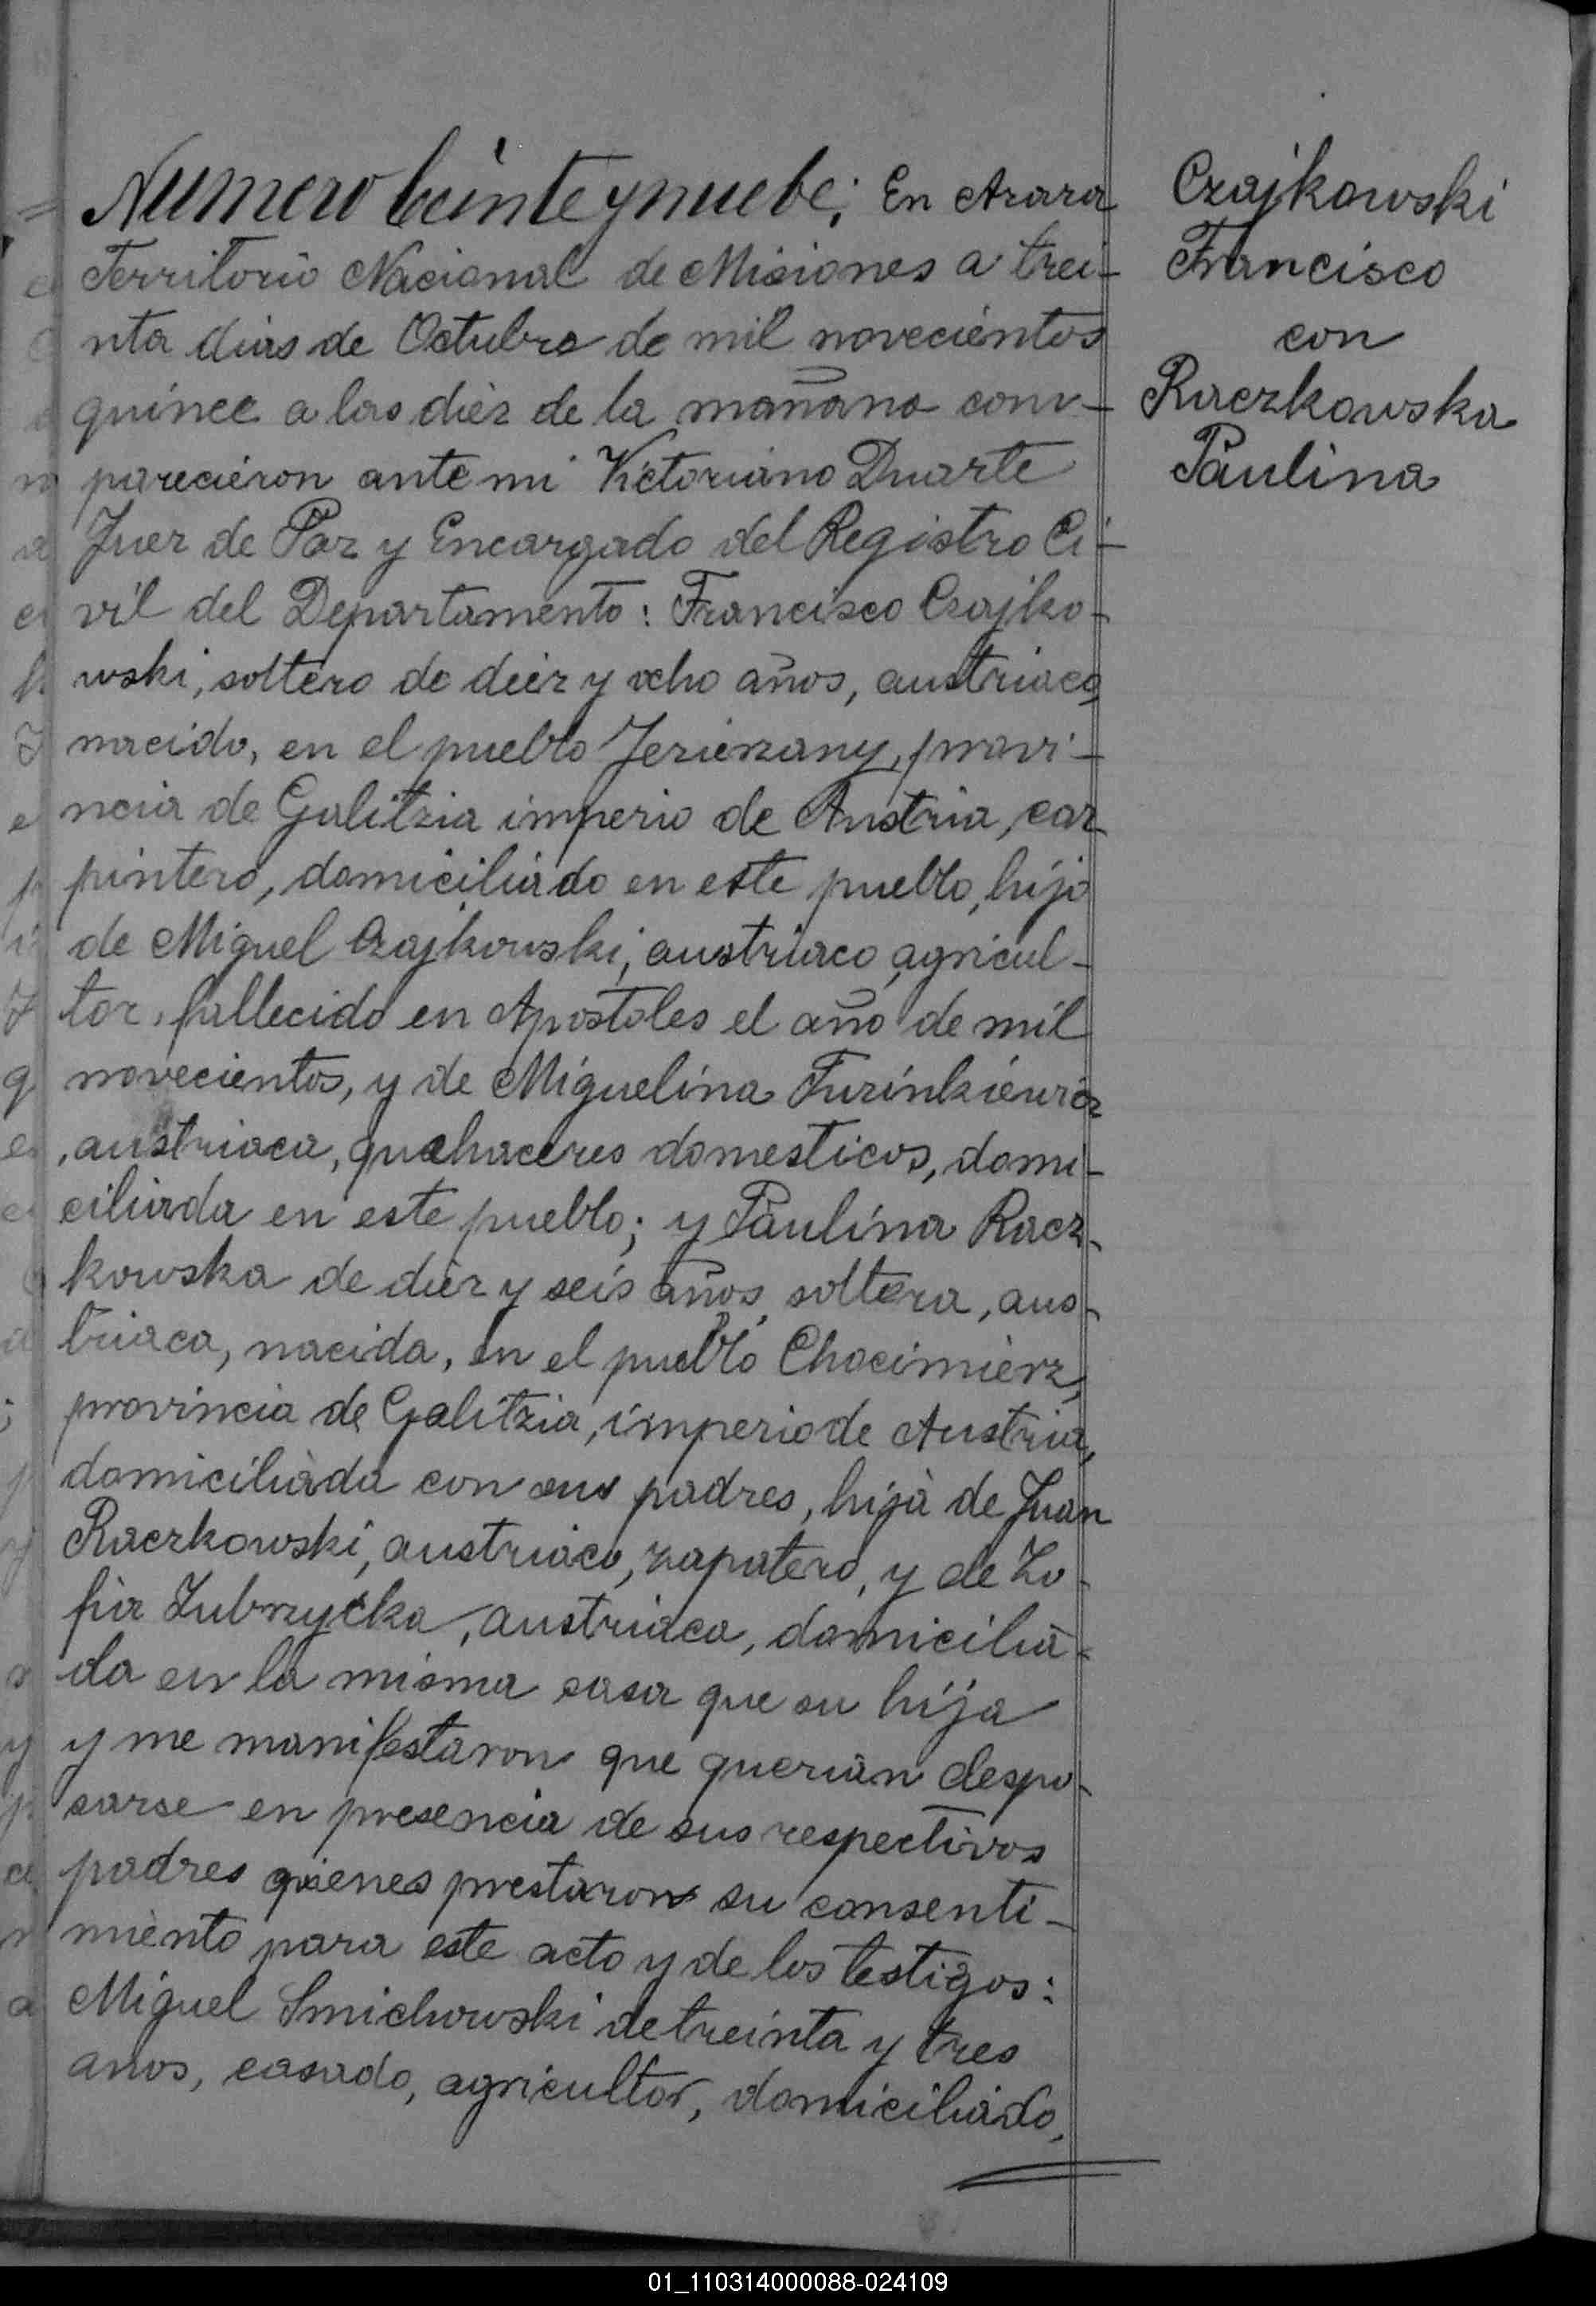 Numero beinte y nuebe; En Azara
Territorio Nacional de Misiones a trei-
nta dias de Octubre de mil novecientos
quince a las diez de la mañana com-
parecieron ante mi Victoriano Duarte
Juez de Paz y Encargado del Registro Ci-
vil del Departamento: Francisco Czajko-
wski, soltero de diez y ocho años, austriaco,
nacido, en el pueblo Jezierzany, provi-
ncia de Galitzia imperio de Austria, car-
pintero, domiciliado en este pueblo, hijo
de Miguel Czajkowski, austriaco, agricul-
tor, fallecido en Apostoles el año de mil
novecientos, y de Miguelina Turinkiewicz
, austriaca, quehaceres domesticos, domi-
ciliada en este pueblo; y Paulina Racz-
kowska de diez y seis años, soltera, aus-
triaca, nacida, en el pueblo Chocimierz,
provincia de Galitzia, imperio de Austria,
domiciliada con sus padres, hija de Juan
Raczkowski, austriaco, zapatero, y de Zo-
fia Zubrzycka, austriaca, domicilia-
da en la misma casa que su hija
y me manifestaron que querian despo-
sarse en presencia de sus respectivos
padres quienes prestaron su consenti-
miento para este acto y de los testigos:
Miguel Smichowski de treinta y tres
anos, casado, agricultor, domiciliado,
Czajkowski
Francisco
con
Raczkowska
Paulina
01_110314000088-024109